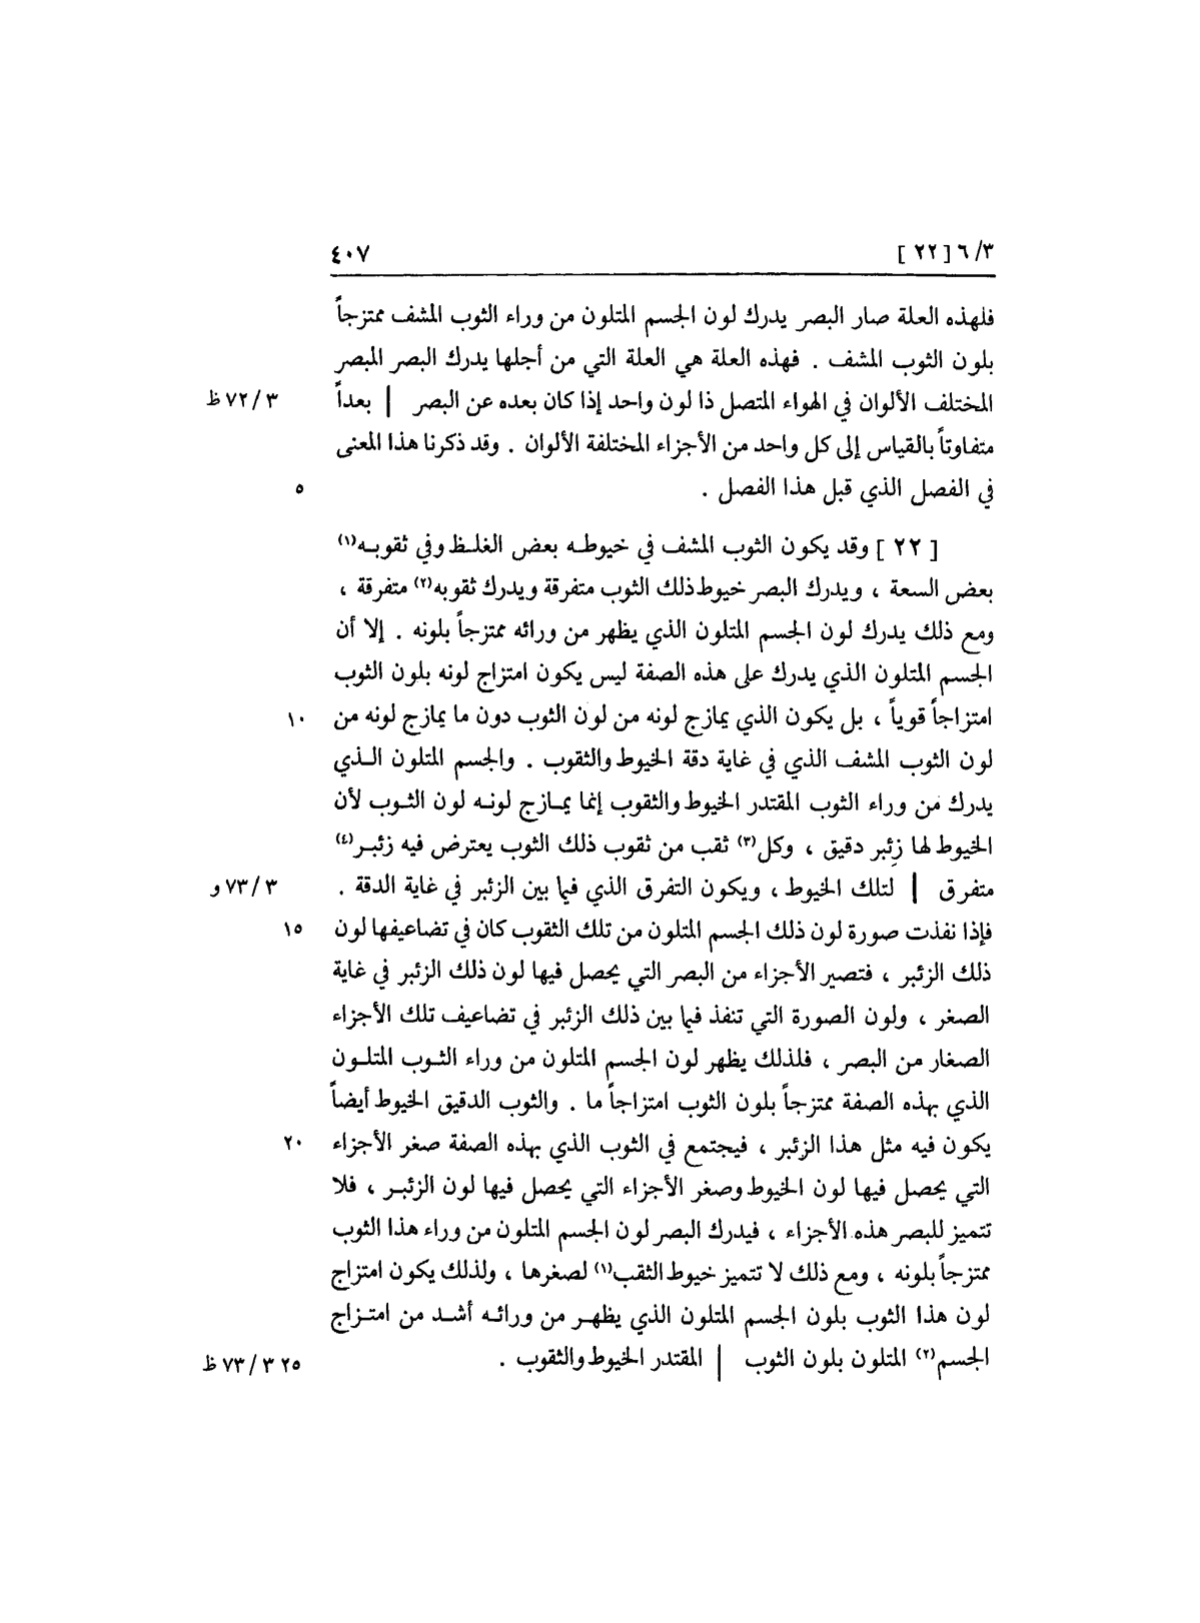 ٣/ ٦ [ ٢٢ ] ٤٠٧
فلهذه العلة صار البصر يدرك لون الجسم المتلون من وراء الثوب المشف ممتزجاً
بلون الثوب المشف . فهذه العلة هي العلة التي من أجلها يدرك البصر المبصر
المختلف الألوان في الهواء المتصل ذا لون واحد إذا كان بعده عن البصر | بعداً ٣ / ٧٢ ظ
متفاوتاً بالقياس إلى كل واحد من الأجزاء المختلفة الألوان . وقد ذكرنا هذا المعنى
في الفصل الذي قبل هذا الفصل . ٥
[ ٢٢ ] وقد يكون الثوب المشف في خيوطـه بعض الغلـظ وفي ثقوبـه(١)
بعض السعة ، ويدرك البصر خيوط ذلك الثوب متفرقة ويدرك ثقوبه(٢) متفرقة ،
ومع ذلك يدرك لون الجسم المتلون الذي يظهر من ورائه ممتزجاً بلونه . إلا أن
الجسم المتلون الذي يدرك على هذه الصفة ليس يكون امتزاج لونه بلون الثوب
امتزاجاً قوياً ، بل يكون الذي يمازج لونه من لون الثوب دون ما يمازج لونه من ١٠
لون الثوب المشف الذي في غاية دقة الخيوط والثقوب . والجسم المتلون الـذي
يدرك من وراء الثوب المقتدر الخيوط والثقوب إنما يمـازج لونـه لون الثـوب لأن
الخيوط لها زِئبر دقيق ، وكل(٣) ثقب من ثقوب ذلك الثوب يعترض فيه زئبـر(٤)
متفرق | لتلك الخيوط ، ويكون التفرق الذي فيما بين الزئبر في غاية الدقة . ٣ / ٧٣ و
فإذا نفذت صورة لون ذلك الجسم المتلون من تلك الثقوب كان في تضاعيفها لون ١٥
ذلك الزئبر ، فتصير الأجزاء من البصر التي يحصل فيها لون ذلك الزئبر في غاية
الصغر ، ولون الصورة التي تنفذ فيما بين ذلك الزئبر في تضاعيف تلك الأجزاء
الصغار من البصر ، فلذلك يظهر لون الجسم المتلون من وراء الثـوب المتلـون
الذي بهذه الصفة ممتزجاً بلون الثوب امتزاجاً ما . والثوب الدقيق الخيوط أيضاً
يكون فيه مثل هذا الزئبر ، فيجتمع في الثوب الذي بهذه الصفة صغر الأجزاء ٢٠
التي يحصل فيها لون الخيوط وصغر الأجزاء التي يحصل فيها لون الزئبـر ، فلا
تتميز للبصر هذه الأجزاء ، فيدرك البصر لون الجسم المتلون من وراء هذا الثوب
ممتزجاً بلونه ، ومع ذلك لا تتميز خيوط الثقب(١) لصغرها ، ولذلك يكون امتزاج
لون هذا الثوب بلون الجسم المتلون الذي يظهـر من ورائـه أشـد من امتـزاج
الجسم(٢) المتلون بلون الثوب | المقتدر الخيوط والثقوب . ٢٥ ٣ / ٧٣ ظ